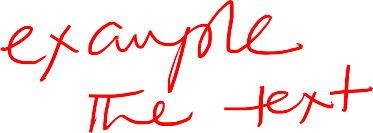 example
The text